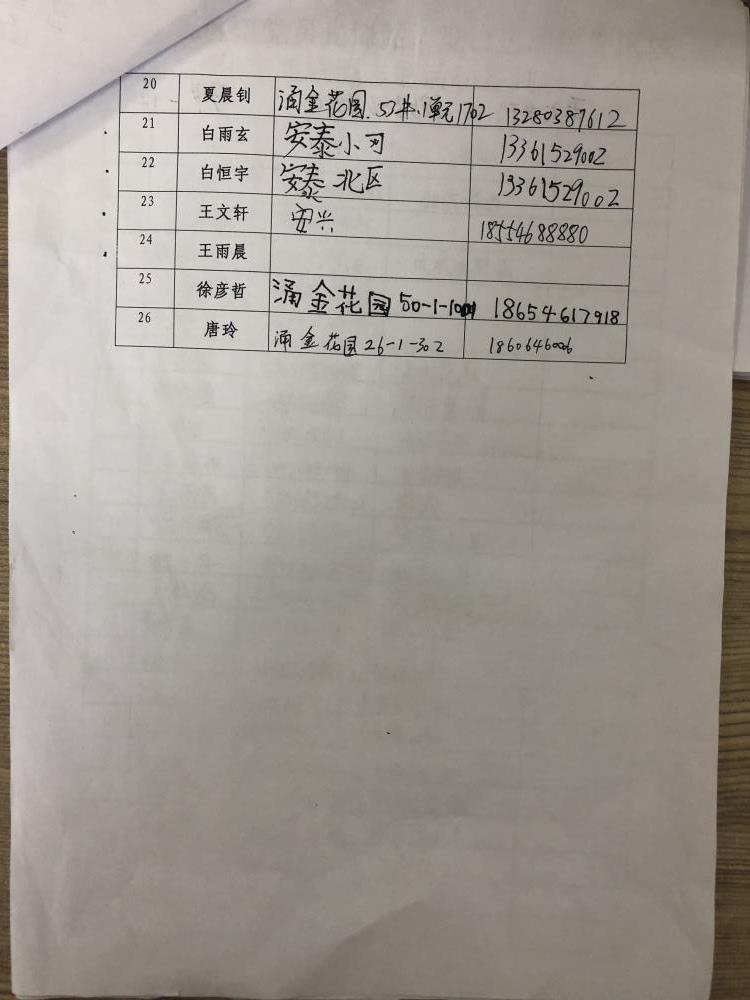 20 夏晨钊 涌金花园 52井.1单元1702 13280387612
21 白雨玄 安泰小 13361529002
22 白恒宇 安泰 北区 13361529002
23 王文轩 安兴 18554688880
24 王雨晨
25 徐彦哲 涌金花园50-1-1001 18654617918
26 唐玲 涌金花园26-1-302 1860646006